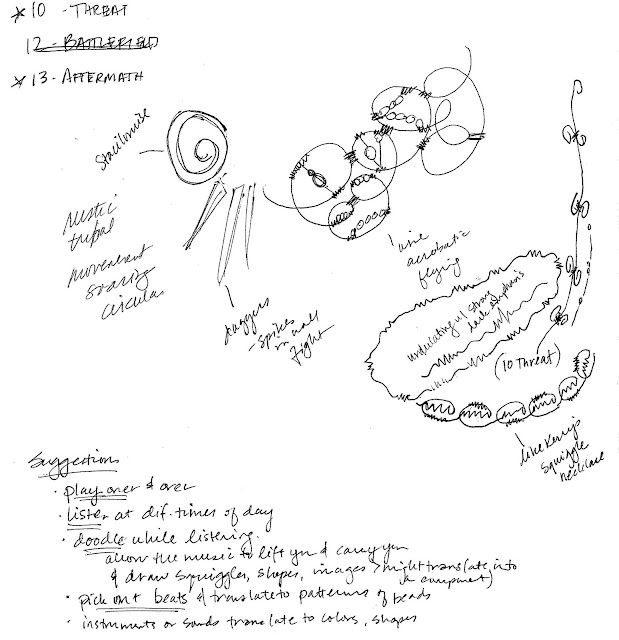 * 10 - THREAT
12 - BATTLEFIELD
* 13 - AFTERMATH
rustic
tribal
movement
soaring
circular
daggers
- spikes
in wall
fight
wire
acrobatic
flying
undulating w/ strong
dark emphasis
(10 Threat)
like Kerrie's
squiggle
necklace
Suggestions
· play over & over
· listen at dif. times of day
· doodle while listening.
allow the music to lift you & carry you
& draw squiggles, shapes, images > might translate into
a component)
· pick out beats & translate to patterns of beads
· instruments or sounds translate to colors, shapes